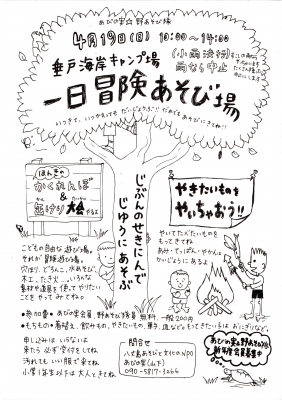 あびの実 野あそび場
4月19日(日) 10:00〜14:00
(小雨決行)
雨なら中止
垂戸海岸キャンプ場
一日冒険あそび場
いつきて、いつかえってもだいじょうぶ!!
ほんきのかくれんぼ
&
缶けり大会やるよ
じぶんのせきにんで
じゆうにあそぶ
やきたいものを
やいちゃおう!!
やいてたべたいものを
もってきてね
あみ・てっぱん・やかんは
かいじょうにあるよ
こどもの自由な遊び場。
それが冒険遊び場。
穴ほり、どろんこ、水あそび、
木工、たき火、いろんな
素材や道具を使って、やりたい
ことをやってみてね。
●参加費・あびの実会員、野あそび場会員 無料、一般200円
●もちもの・着替え、飲みもの、やきたいもの、軍手、
申し込みはいらないよ
来たら必ず受付をしてね
汚れてもいい服で来てね
小学1年生以下は大人ときてね
問合せ
八丈島あそびと文化のNPO
あびの実(山下)
090-5817-3266
あびの実&野あそび場
新年度会員募集中